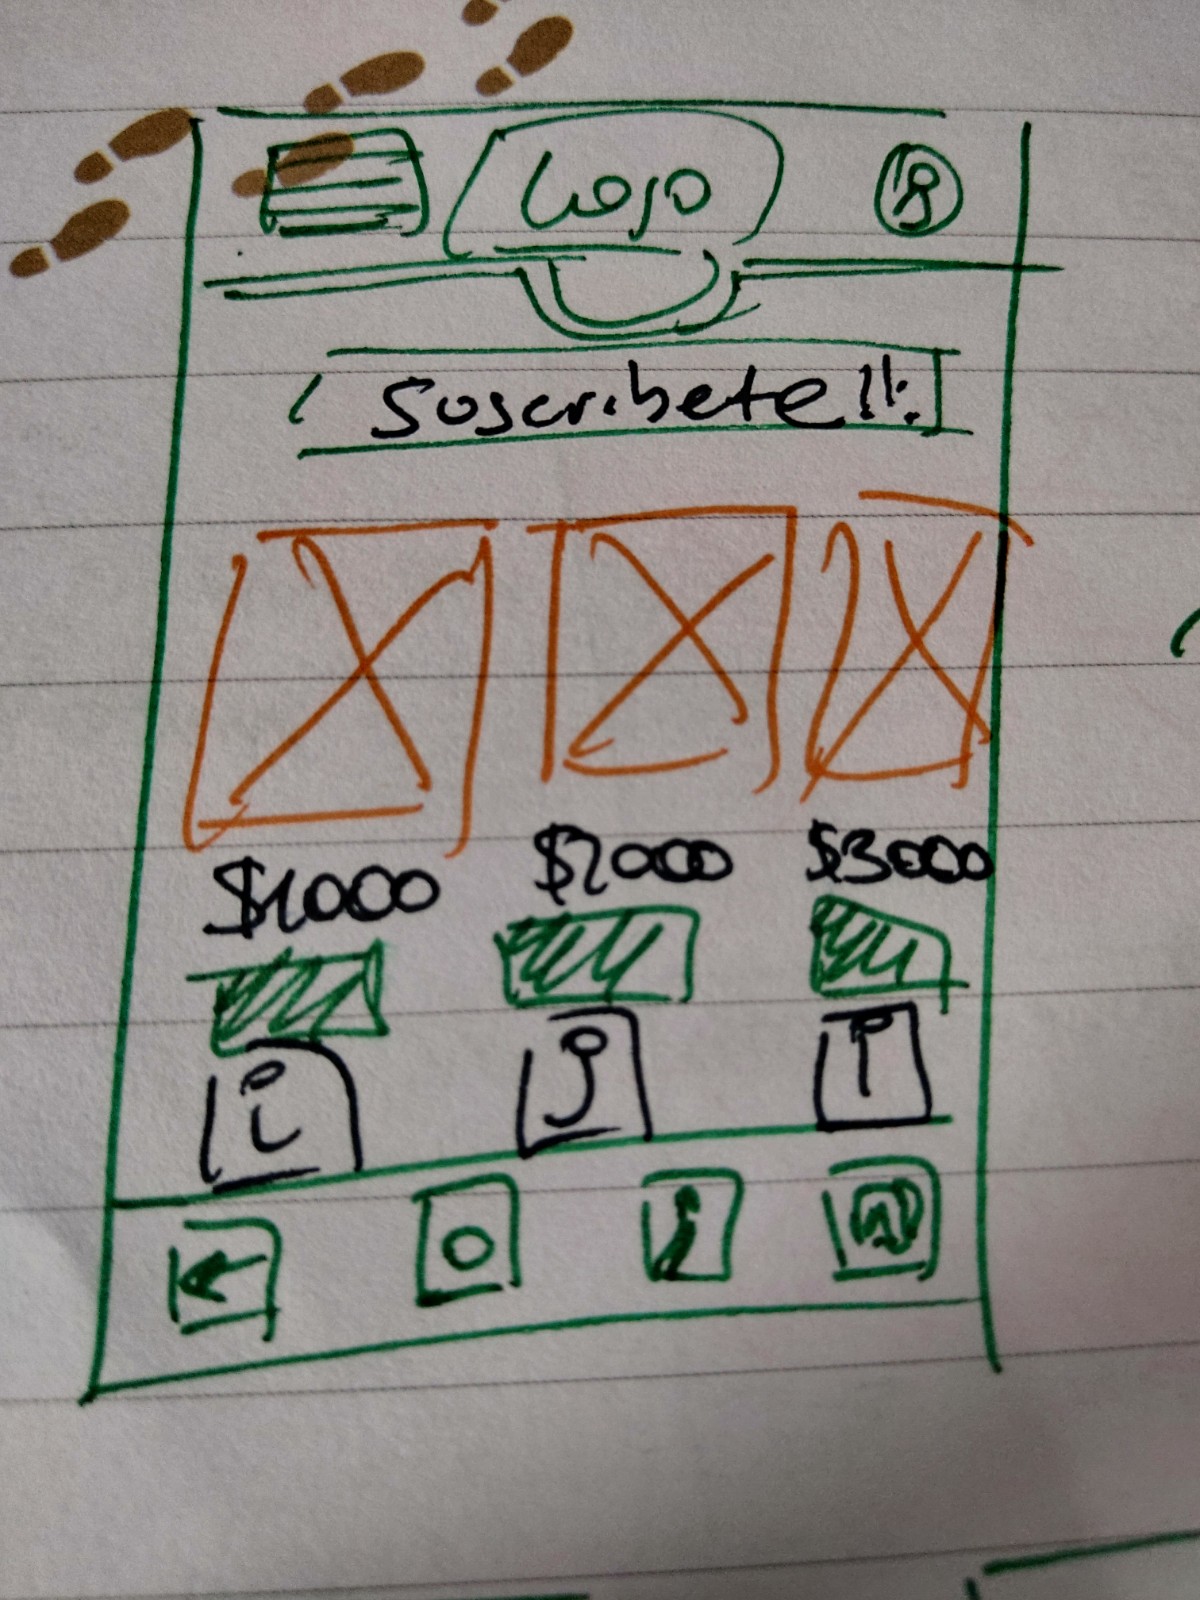 Logo
Suscribete!!!
$1000 $2000 $3000
i i i
i